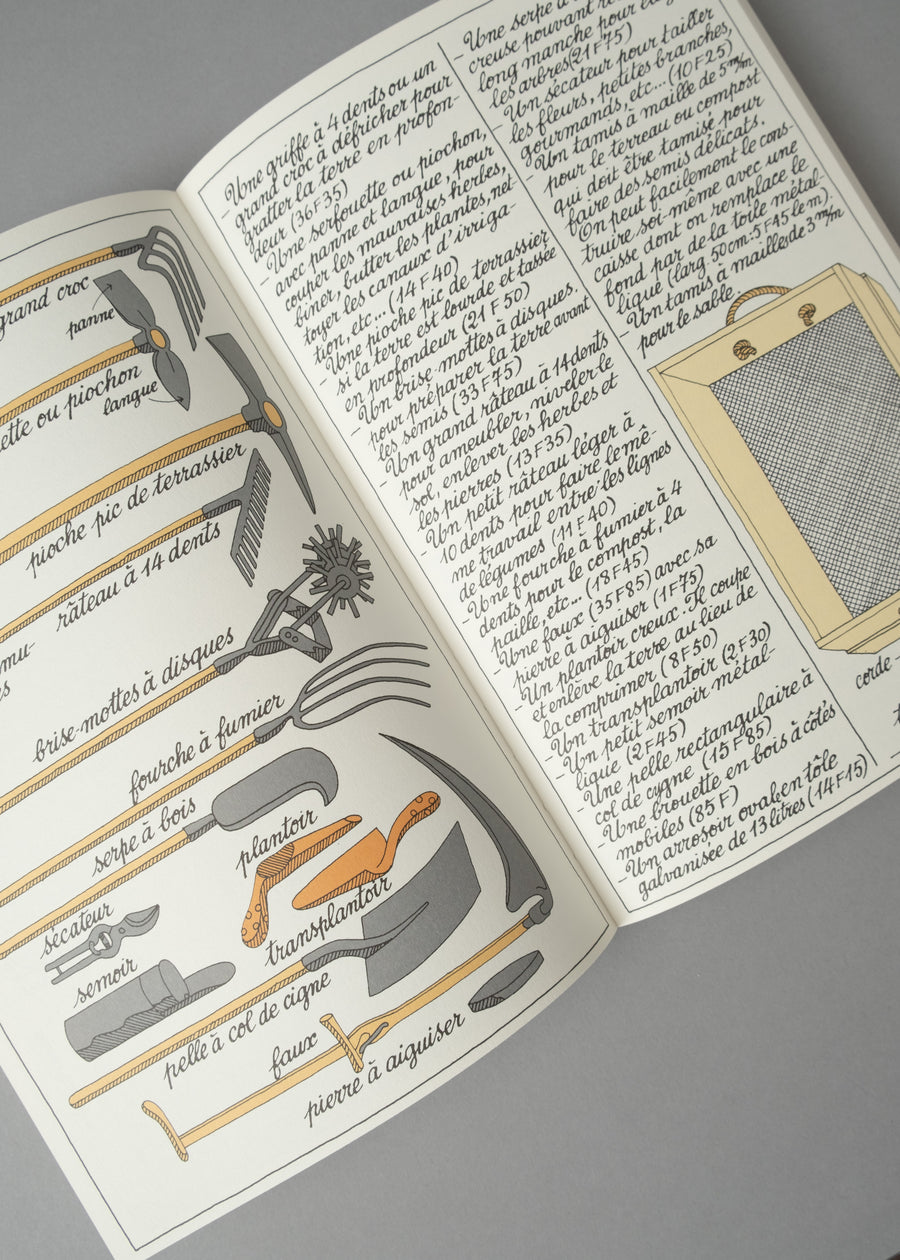 grand croc
panne
ette ou piochon
langue
pioche pic de terrassier
râteau à 14 dents
mu-
es
brise-mottes à disques
fourche à fumier
serpe à bois
plantoir
transplantoir
sécateur
semoir
pelle à col de cigne
faux
pierre à aiguiser
- Une griffe à 4 dents ou un
grand croc à défricher pour
gratter la terre en profon-
deur (36F35)
- Une serfouette ou piochon,
avec panne et langue, pour
couper les mauvaises herbes,
biner, butter les plantes, net-
toyer les canaux d'irriga-
tion, etc... (14F40)
- Une pioche pic de terrassier
si la terre est lourde et tassée
en profondeur (21F50)
- Un brise-mottes à disques,
pour préparer la terre avant
les semis (33F75)
- Un grand râteau à 14 dents
pour ameublir, niveler le
sol, enlever les herbes et
les pierres (13F35)
- Un petit râteau léger à
10 dents pour faire le mê-
me travail entre les lignes
de légumes (11F40)
- Une fourche à fumier à 4
dents pour le compost, la
paille, etc... (18F45)
- Une faux (35F85) avec sa
pierre à aiguiser (1F75)
- Un plantoir creux. Il coupe
et enlève la terre au lieu de
la comprimer (8F50)
- Un transplantoir (2F30)
- Un petit semoir métal-
lique (2F45)
- Une pelle rectangulaire à
col de cygne (15F85)
- Une brouette en bois à côtés
mobiles (85F)
- Un arrosoir oval, en tôle
galvanisée de 13 litres (14F15)
- Une serpe à
creuse pouvant
long manche pour
les arbres (21F75)
- Un sécateur pour tailler
les fleurs, petites branches,
gourmands, etc... (10F25)
- Un tamis à maille de 5m/m
pour le terreau ou compost
qui doit être tamisé pour
faire des semis délicats.
On peut facilement le cons-
truire soi-même avec une
caisse dont on remplace le
fond par de la toile métal-
lique (larg. 50cm: 5F45 le m).
Un tamis à mailles de 3m/m
pour le sable.
corde